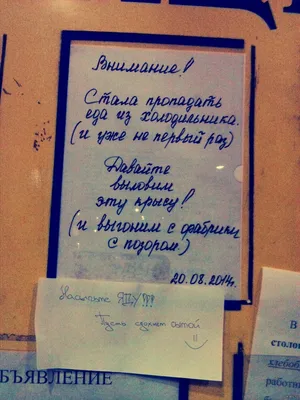 Внимание!!
Стала пропадать
еда из холодильника.
(и уже не первый раз)
Давайте
выловим
эту крысу!
(и выгоним с фабрики
с позором.)
20.08.2014г.
ЯДУ!!!
Пусть сдохнет
ОБЪЯВЛЕНИЕ
В
столо
хлебоб
работн